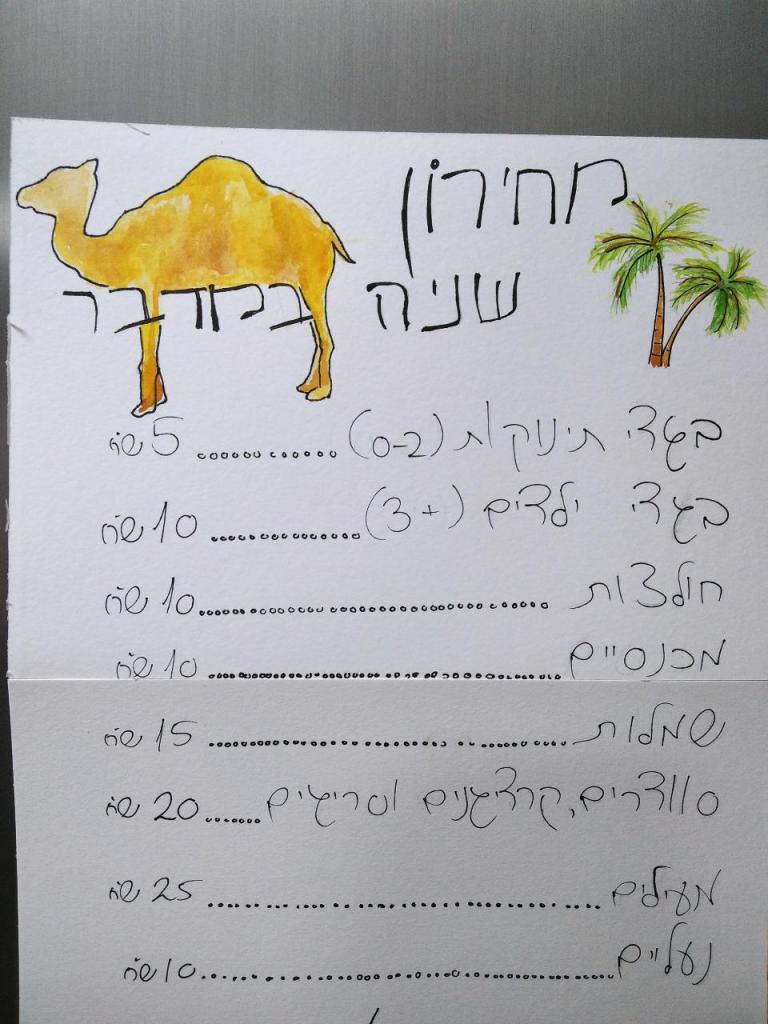 מחירון
שניה במדבר
בגדי תינוקות (0-2) ............ 5 ש"ח
בגדי ילדים (3+) ............... 10 ש"ח
חולצות .............................. 10 ש"ח
מכנסיים .............................. 10 ש"ח
שמלות .............................. 15 ש"ח
סוודרים, קרדיגנים וסריגים ...... 20 ש"ח
מעילים .............................. 25 ש"ח
נעליים .............................. 10 ש"ח